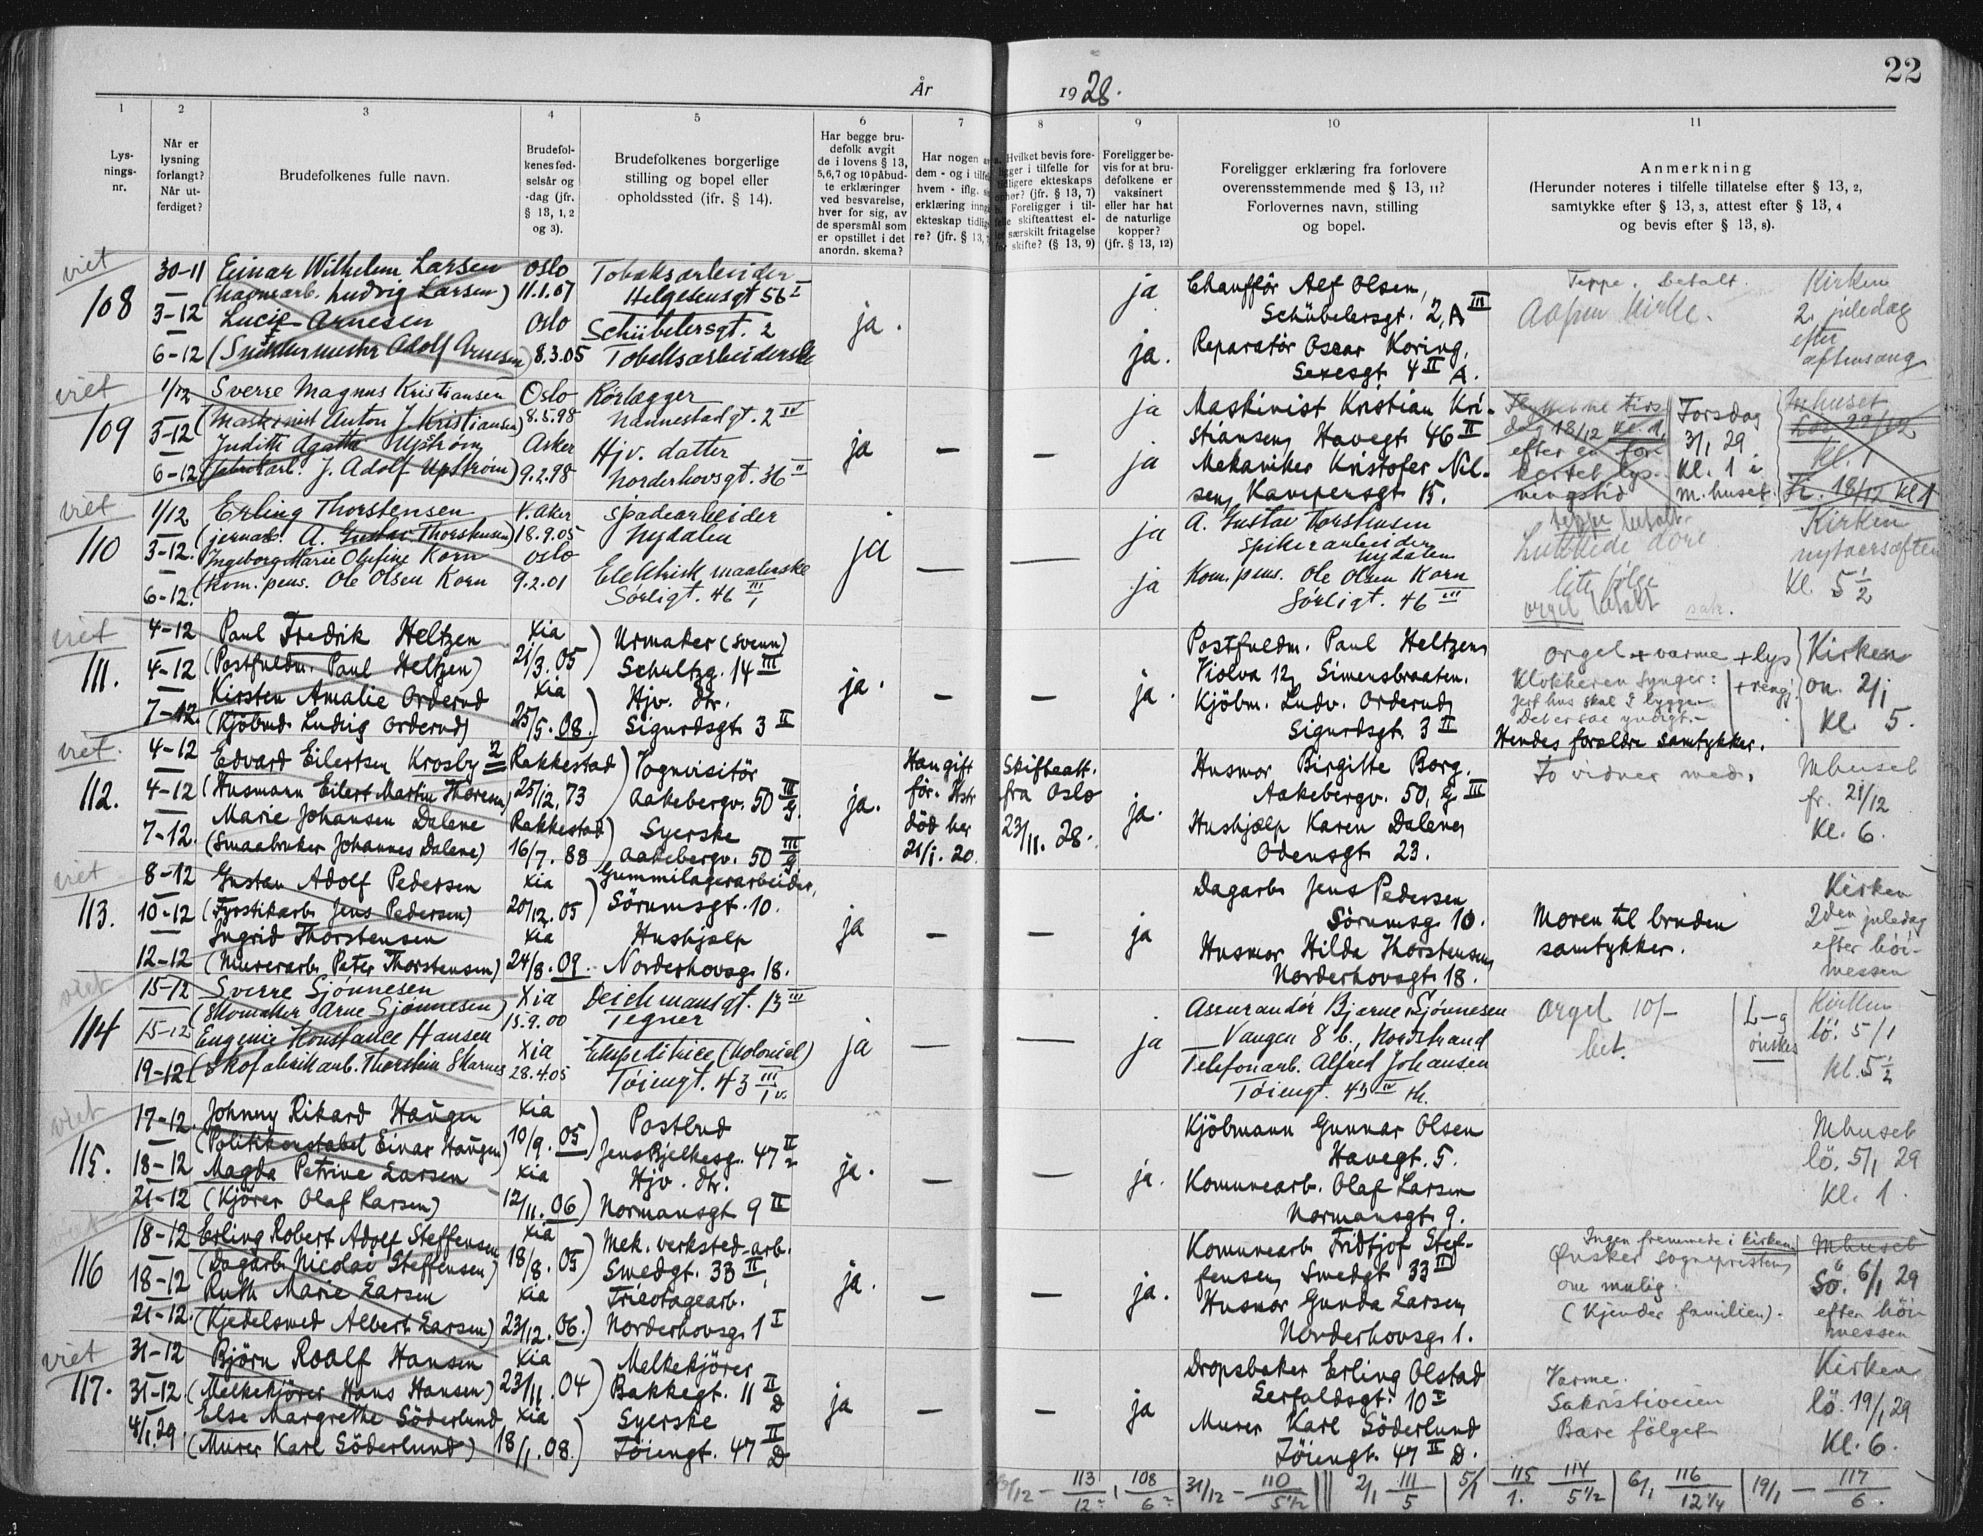 År 1928.
22
1 2 3 4 5 6 7 8 9 10 11
Lysningsnr.
Når er lysning forlangt? Når utferdiget?
Brudefolkenes fulle navn.
Brudefolkenes fødselsår og -dag (jfr. § 13, 1, 2 og 3).
Brudefolkenes borgerlige stilling og bopel eller opholdssted (ifr. § 14).
Har begge brudefolk avgit de i lovens § 13, 5,6,7 og 10 påbudte erklæringer ved besvarelse, hver for sig, av de spørsmål som er opstillet i det anordn. skema?
Har nogen dem - og i hvem - iflg. erklæring ekteskap re? (jfr. § 13,
Hvilket bevis foreligger i tilfelle for tidligere ekteskaps ophør? (jfr. § 13, 7) Foreligger i tilfelle skifteattest eller særskilt fritagelse for skifte? (§ 13, 9)
Foreligger bevis for at brudefolkene er vaksinert eller har hat de naturlige kopper? (jfr. § 13, 12)
Foreligger erklæring fra forlovere overensstemmende med § 13, 11? Forlovernes navn, stilling og bopel.
Anmerkning
(Herunder noteres i tilfelle tillatelse efter § 13, 2, samtykke efter § 13, 3, attest efter § 13, 4 og bevis efter § 13, 8).
viet
108
30-11 Einar Wilhelm Larsen Oslo Tobaksarbeider
(havnearb. Ludvig Larsen) 11.1.07 Helgesensgt 56 I
3-12 Arnesen Oslo Schübelersgt. 2
6-12 Adolf Arnesen) 8.3.05 Tobaksarbeiderske
ja.
ja Chauffør Alf Olsen,
Schübelersgt. 2, A III
ja. Reparatør Oscar Koring,
4 II A.
Teppe, betalt.
Kirken
2. juledag
efter
aftensang
viet
109
1/12 Sverre Magnus Kristiansen Oslo Rørlægger
(Maskinist Anton J. Kristiansen) 8.5.98 Nannestadgt. 2 IV
3-12 Judith Agathe Upström Asker Hjv. datter
6-12 J. Adolf Upström) 9.2.98 Norderhovsgt. 36 II
ja – –
ja Maskinist Kristian Kristiansen, Havegt. 46 II
ja Mekaniker Kristofer Nilsen, Kampensgt 15.
18/12 kl. 1,
efter en forkortet lysningstid
Torsdag
3/1 29
kl. 1 i
m.huset.
Mhuset
kl. 1
18/12 kl 1
viet
110
1/12 Erling Thorstensen V. Aker Spadearbeider
(jernarb. A. Gustav Thorstensen) 18.9.05 Nydalen
3-12. Ingeborg Marie Olefine Korn Oslo Elektrisk maalerske
6-12. (kom. pens. Ole Olsen Korn 9.2.01 Sørligt. 46 III
ja – –
ja A. Gustav Torstensen
Spikerarbeider
Nydalen
ja Kom. pens. Ole Olsen Korn
Sørligt. 46 III
teppe betalt.
Lukkede døre
lite følge
orgel betalt
Kirken
nytaarsaften
kl. 5 1/2
viet
111.
4-12 Paul Fredrik Heltzen Xia Urmaker (svenn)
4-12 (Postfuldm. Paul Heltzen) 21/3. 05) Schultzg. 14 III
Kirsten Amalie Orderud Xia Hjv. dtr.
7-12. (Kjøbmd. Ludvig Orderud) 25/5. 08.) Sigurdsgt. 3 II
ja. – – ja.
Postfuldm. Paul Heltzen,
Violva 12, Simensbraaten.
Kjøbm. Ludv. Orderud,
Sigurdsgt. 3 II
orgel + varme + lys
Klokkeren synger: + rengj.
Jert hus skal I bygge
Det er saa yndigt.–
Hendes forældre samtykker.
Kirken
on. 2/1
kl. 5.
viet.
112.
4-12 Edvard Eilertsen Krosby 2 Rakkestad Vognvisitör
4-12 (Husmann Eilert Martin Thoresen) 25/12. 73 Aakebergv. 50 III g.
Marie Johansen Dalene Rakkestad) Syerske
7-12. (Smaabruker Johannes Dalene) 16/7. 88 Aakebergv. 50 III g
ja.
Han gift
för. Hstr
död her
21/1. 20.
Skifteatt.
fra Oslo
23/11. 28.
ja.
Husmor Birgitte Borg,
Aakebergv. 50, g III
Hushjælp Karen Dalene,
Odensgt. 23.
To vidner med.
Mhuset
fr. 21/12
kl. 6.
viet
113.
8-12 Gustav Adolf Pedersen Xia Gummilagerarbeider,
10-12 (Fyrstikarb. Jens Pedersen) 20/12. 05) Sörumsgt. 10.
Ingrid Thorstensen Xia Hushjælp
12-12 (Murerarb. Peter Thorstensen) 24/8. 09. Norderhovsg. 18.
ja – – ja
Dagarb. Jens Pedersen
Sörumsg. 10.
Husmor Hilda Thorstensen,
Norderhovsgt. 18.
Moren til bruden
samtykker.
Kirken
2den juledag
efter höimessen
viet
114
15-12 Sverre Sjønnesen Xia Deichmansgt. 13 III
(Skomaker Arne Sjønnesen) 15.9.00 Tegner
15-12 Eugenie Konstance Hansen Xia Ekspeditrice (kolonial)
19-12 (Skofabrikarb. Thorstein Skarnes 28.4.05 Tøiengt. 43 III
ja – – ja
Assurandør Bjarne Sjønnesen
Vangen 8 b., Nordstrand
Telefonarb. Alfred Johansen
Tøiengt. 43 IV th.
Orgel 10/-
bet.
L–g
ønskes
Kirken
lö. 5/1
kl. 5 1/2
viet
115.
17-12. Johnny Rikard Haugen Xia Postbud
(Politikonstabel Einar Haugen) 10/9. 05) Jens Bjelkesg. 47 II
18-12 Magda Petrine Larsen Xia Hjv. dtr.
21-12 (Kjører Olaf Larsen) 12/11. 06) Normansgt 9 II
ja. – – ja.
Kjöbmann Gunnar Olsen
Havegt. 5.
Komunearb. Olaf Larsen
Normansgt 9.
Mhuset
lö. 5/1 29
kl. 1.
viet
116
18-12 Erling Robert Adolf Steffensen Xia Mek. verksted-arb.
(Dagarb. Nicolai Steffensen) 18/8. 05) Smedgt. 33 II,
18-12 Ruth Marie Larsen Xia Tricotagearb.
21-12. (Kjedelsmed Albert Larsen) 23/12. 06.) Norderhovsg. 1 I
ja. – – ja.
Komunearb. Fridtjof Steffensen, Smedgt 33 III
Husmor Gunda Larsen,
Norderhovsg. 1.
Ingen fremmede i kirken
Ønsker sognepresten,
om mulig.
(Kjender familien).
Mhuset
Sö. 6/1 29
efter höimessen
viet
117.
31-12 Björn Roalf Hansen Xia Melkekjörer
31-12. (Melkekjörer Hans Hansen) 23/11. 04) Bakkegt. 11 II D
Else Margrethe Söderlund Xia Syerske
4/1.29. (Murer Karl Söderlund) 18/1. 08.) Töiengt. 47 II D
ja – – ja
Dropsbaker Erling Olstad
10 I
Murer Karl Söderlund
Töiengt. 47 II D.
Varme.
Sakristiveien
Bare følget
Kirken
lö. 19/1 29
kl. 6.
/12 – 113/12 108/6 31/12 – 110/5 1/2 2/1 111/5 5/1 115/1. 114/5 1/2 6/1 116/12 1/4 19/1 – 117/6.